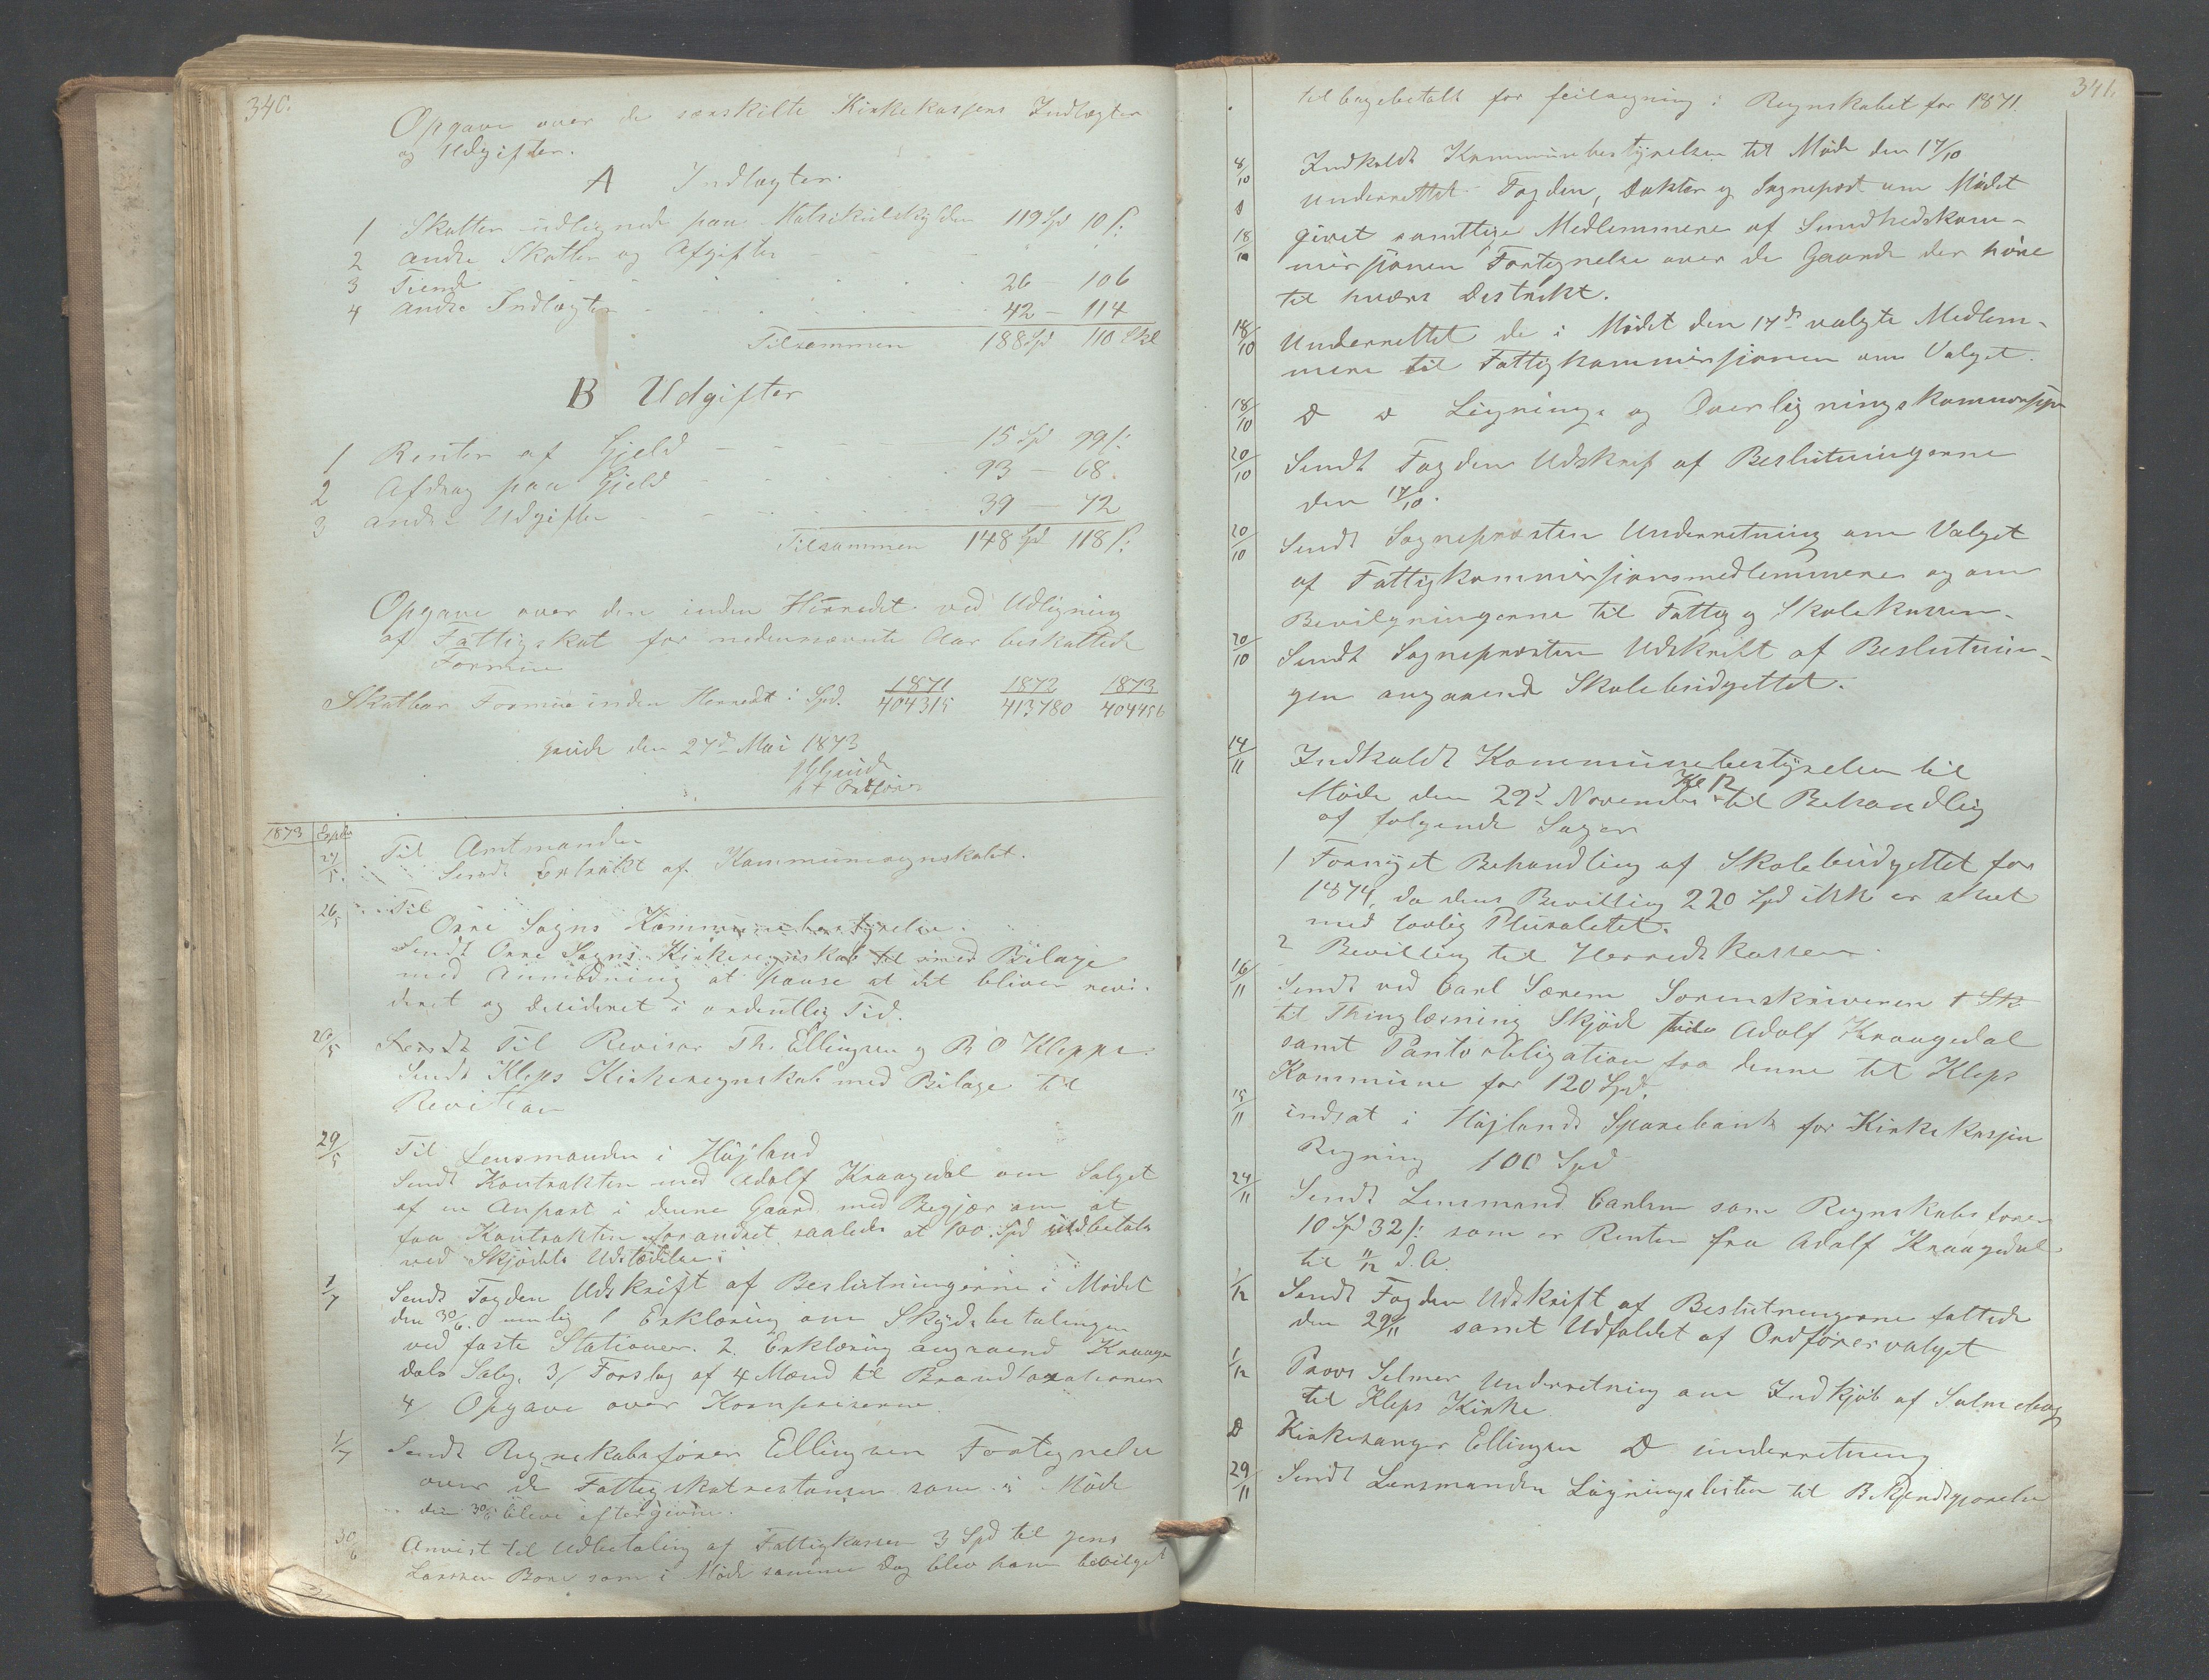 340.
Opgave over de særskilte Kirkekassens Indtægter
og Udgifter.
A Indtægter.
1 Skatter udlignede paa Matrikulskylden 119 Spd 10 s:
2 andre Skatter og Afgifter
3 Tiende 26 - 106
4 andre Indtægter 42 - 114
Tilsammen 188 Spd 110 Skl
B Udgifter
1 Renter af Gjeld 15 Spd 99 s:
2 Afdrag paa Gjeld 93 - 68.
3 andre Udgifter 39 - 72
Tilsammen 148 Spd 118 s:
Opgave over den inden Herredet ved Udligning
af Fattigskat for nedennævnte Aar beskattede
Formue
1871 1872 1873
Skatbar Formue inden Herredet i Spd. 404315 413780 404456
den 27de Mai 1873
1873 Exped
27/5. Til Amtmanden
Sendt Extrakt af Kommuneregnskabet.
26/5 Til
Orre Sogns Kommunebestyrelse.
Sendt Orre Sogns Kirkeregnskab til med Bilage
med Anmodning at passe at det bliver revi-
deret og decideret i ordentlig Tid.
29/5 Sendt Til Revisor Th. Ellingsen og B O Kleppe.
Sendt Kleps Kirkeregnskab med Bilage til
Revision
29/5 Til Lensmanden i Højland
Sendt Kontrakten med Adolf Kraagedal om Salget
af en Anpart i denne Gaard med Begjær om at
faa Kontrakten forandret saaledes at 100 Spd udbetales
ved Skjødets Udstædelse
1/7 Sendt Fogden Udskrift af Beslutningerne i Mødet
den 30/6. nemlig 1 Erklæring om Skydsbetalingen
ved faste Stationer. 2. Erklæring angaaend Kraage
dals Salg. 3/ Forslag af 4 Mænd til Brandtaxationen
4/ Opgave over Kornpriserne.
1/7 Sendt Regnskabsfører Ellingsen Fortegnelse
over de Fattigskatrestanser som i Møde
den 30/6 bleve eftergivne.
30/6 Anvist til Udbetaling af Fattigkassen 3 Spd til Jens
Larssen Bore som i Møde samme Dag blev ham bevilget
341.
tilbagebetalt for feilregning i Regnskabet for 1871.
8/10 Indkaldt Kommunebestyrelsen til Møde den 17/10
underrettet Fogden, Doktor og Sognepræst om Mødet
18/10 givet samtlige Medlemmere af Sundhedskom-
missionen Fortegnelse over de Gaarde der høre
til hvers Distrikt.
18/10 Underrettet de i Mødet den 17de valgte Medlem-
mere til Fattigkommissionen om Valget.
18/10 Lignings og Overligningskommission
20/10 Sendt Fogden Udskrift af Beslutningerne
den 17/10.
20/10 Sendt Sognepræsten Underretning om Valget
af Fattigkommissionsmedlemmere og om
Bevilgningerne til Fattig og Skolekassen.
20/10 Sendt Sognepræsten Udskrift af Beslutnin-
gen angaaende Skolebudgettet.
14/11 Indkaldt Kommunebestyrelsen til
Møde den 29d November Kl 12 til Behandlig
af følgende Sager
1 Fornyet Behandling af Skolebudgettet for
1874, da dens Bevilling 220 Spd ikke er skeet
med lovlig Pluralitet.
2 Bevilling til Herredskassen.
16/11 Sendt ved Carl Særem Sorenskriveren
til Thinglæsning Skjøde Adolf Kraagedal
samt Pantobligation fra denne til Kleps
Kommune for 120 Spd.
15/11 indsat i Højlands Sparebank for Kirkekassen
Regning 100 Spd
24/11 Sendt Lensmand Carlsen som Regnskabsfører
10 Spd 32 s: som er Renter fra Adolf Kraagedal
til 11/12 d. A.
1/12 Sendt Fogden Udskrift af Beslutningerne fattede
den 29/11 samt Udfaldet af Ordførervalget
1/12 Provs Selmer Underretning om Indkjøb af Salmebog
til Kleps Kirke
D Kirkesanger Ellingsen D underretning
29/11 Sendt Lensmanden Ligningslisten til Bekjendtgjørelse